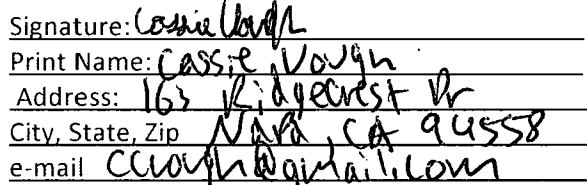 Signature: Cassie Vough
Print Name: Cassie Vough
Address: 163 Ridgecrest Dr
City, State, Zip Napa, CA 94558
e-mail ccvough@gmail.com